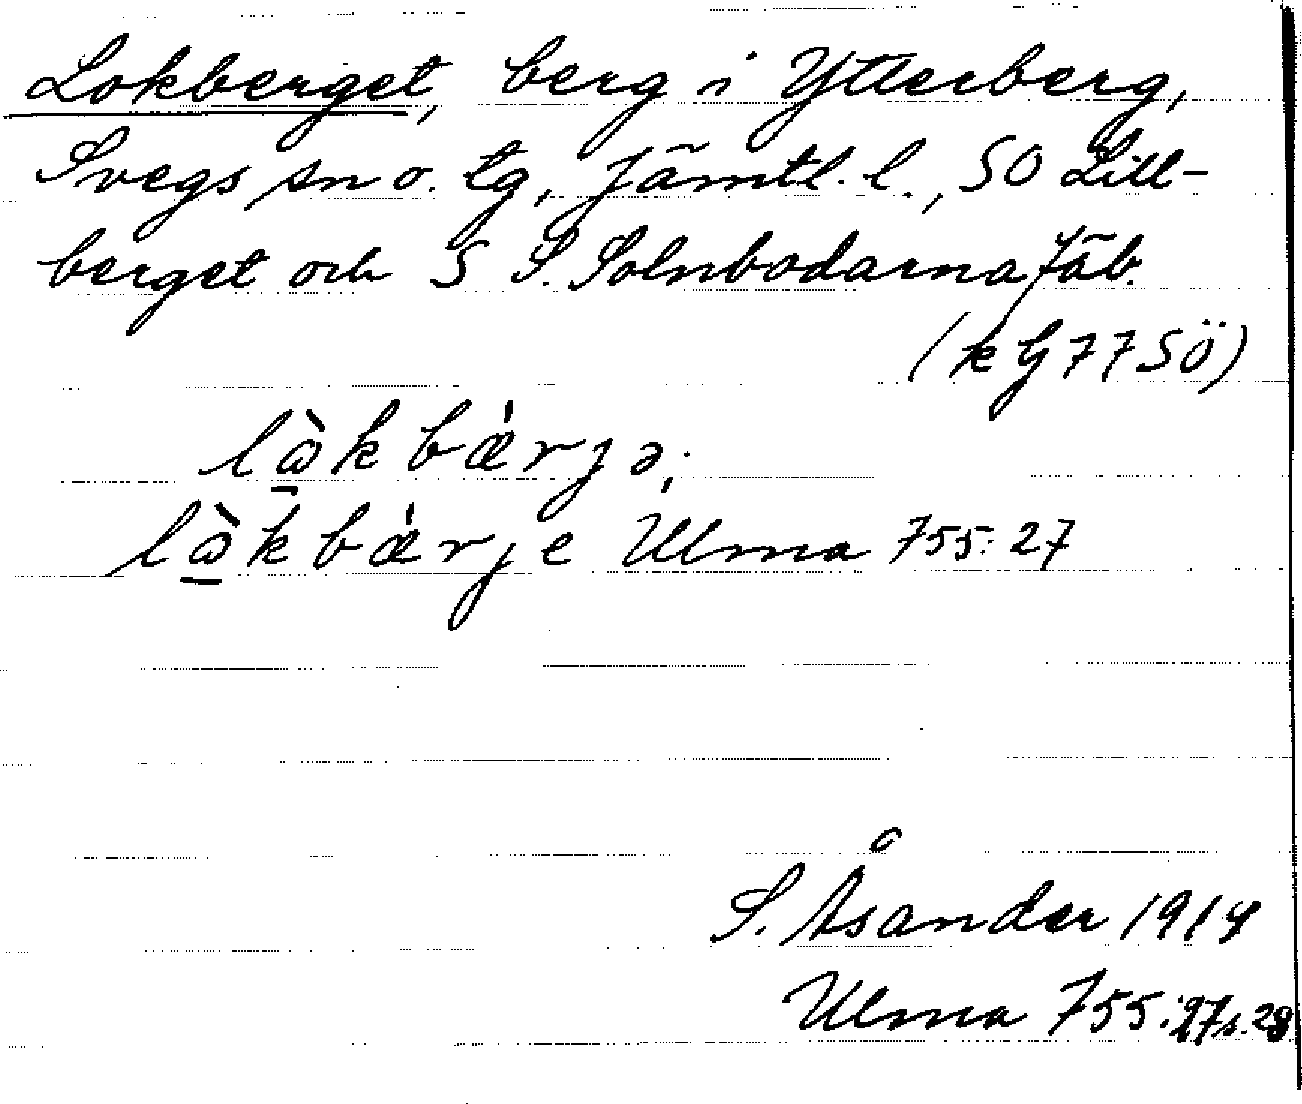 Lokberget, berg i Ytterberg,
Svegs sn o. tg, Jämtl. l., SO Lill-
berget och S S. Solnbodarna fäb.
(k G 77 SÖ)
lὼ̠kbæ̍rjə,
lὼ̠kbæ̍rje Ulma 755:27
S. Åsander 1914
Ulma 755: 27 s. 28